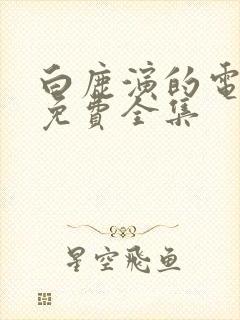 白鹿演的電
免費全集
星空飛魚